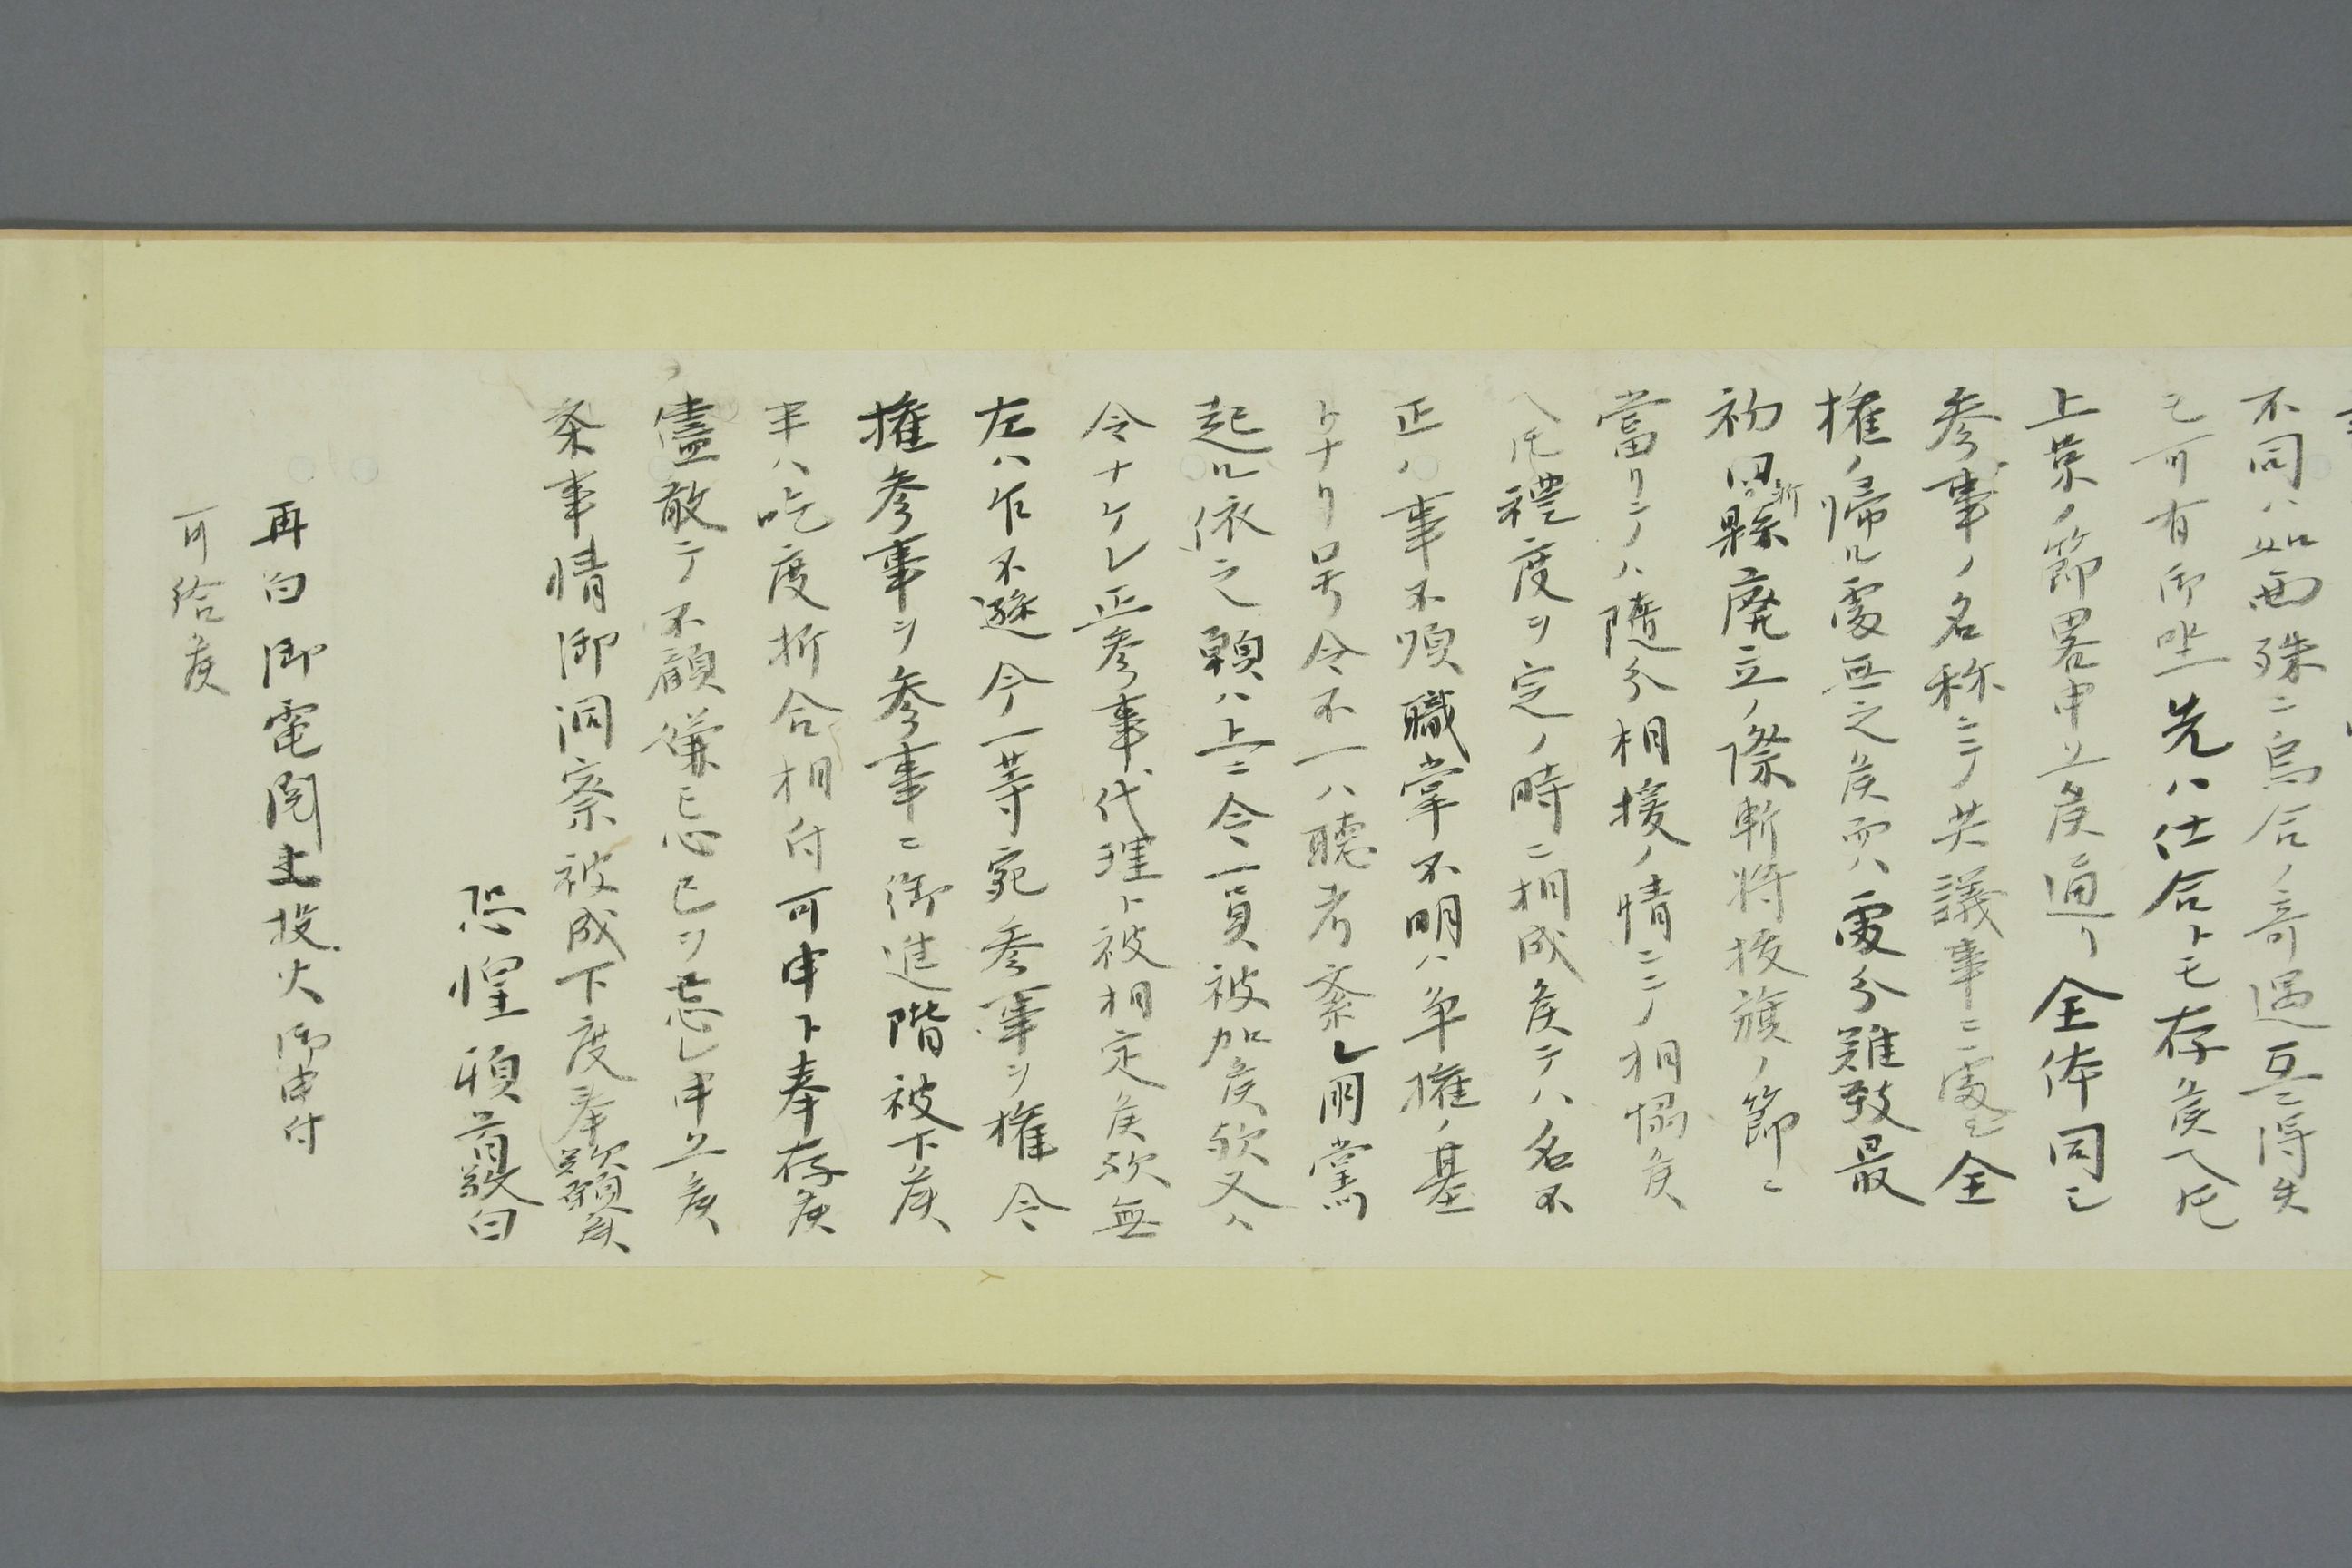 不同ハ如西殊ニ烏合ノ奇遇互ニ得失
モ可有御坐先ハ仕合トモ存候ヘ𪜈
上京ノ節畧申上候通リ全体同シ
参事ノ名称ニテ共議事ニ處シ全
権ノ帰ル處無之候而ハ處分難致最
初旧新縣廃立ノ際斬将抜旗ノ節ニ
當リテハ随分相援ノ情ニテ相協候
ヘ𪜈禮度ヲ定ノ時ニ相成候テハ名不
正ハ事不順職掌不明ハ争権ノ基
トナリ号令不一ハ聴者紊レ朋黨
起ル依之願ハ上ニ令一員被加候歟又ハ
令ナケレ正参事代理ト被相定候歟無
左ハ乍不遜今一等宛参事ヲ権令
権参事ヲ参事ニ御進階被下候
半ハ吃度折合相付可申ト奉存候
儘敢テ不顧嫌忌己ヲ忘レ申上候
条事情御洞察被成下度奉歎願候
恐惶頓首敬白
再白御電閲土投火御申付
可給候